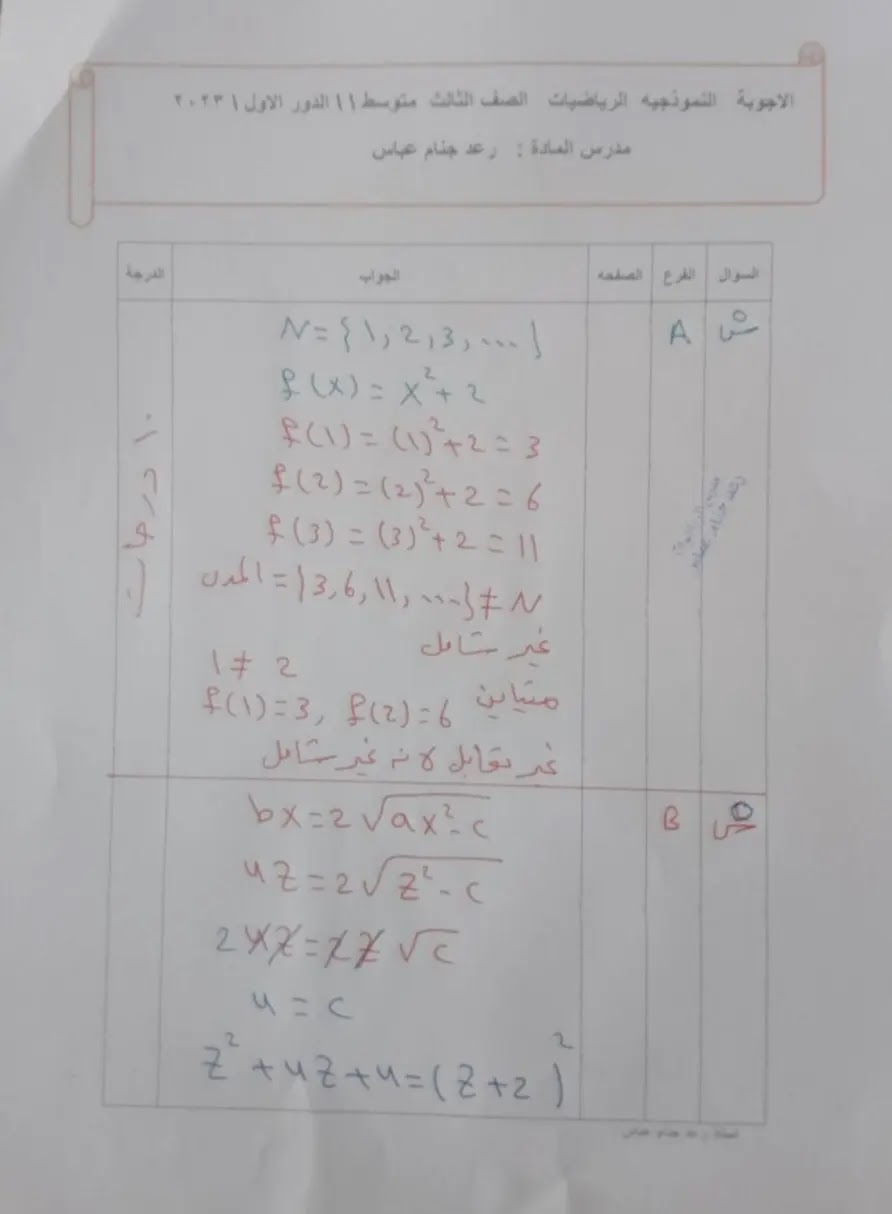 الاجوبة النموذجيه الرياضيات الصف الثالث متوسط ١١ الدور الاول ٢٠٢٣١
مدرس المادة : رعد جثام عباس
السوال الفرع الصفحه الجواب الدرجة
س٥ A
N = {1, 2, 3, ...}
f(x) = x² + 2
f(1) = (1)² + 2 = 3
f(2) = (2)² + 2 = 6
f(3) = (3)² + 2 = 11
المدى = {3, 6, 11, ...} ≠ N
غير شامل
1 ≠ 2
متباين f(1) = 3, f(2) = 6
غير تقابل لانه غير شامل
١٠ درجات
B
bx = 2√ax² - c
4z = 2√z² - c
24z = 2z √c
4 = c
z² + 4z + 4 = (z + 2)²